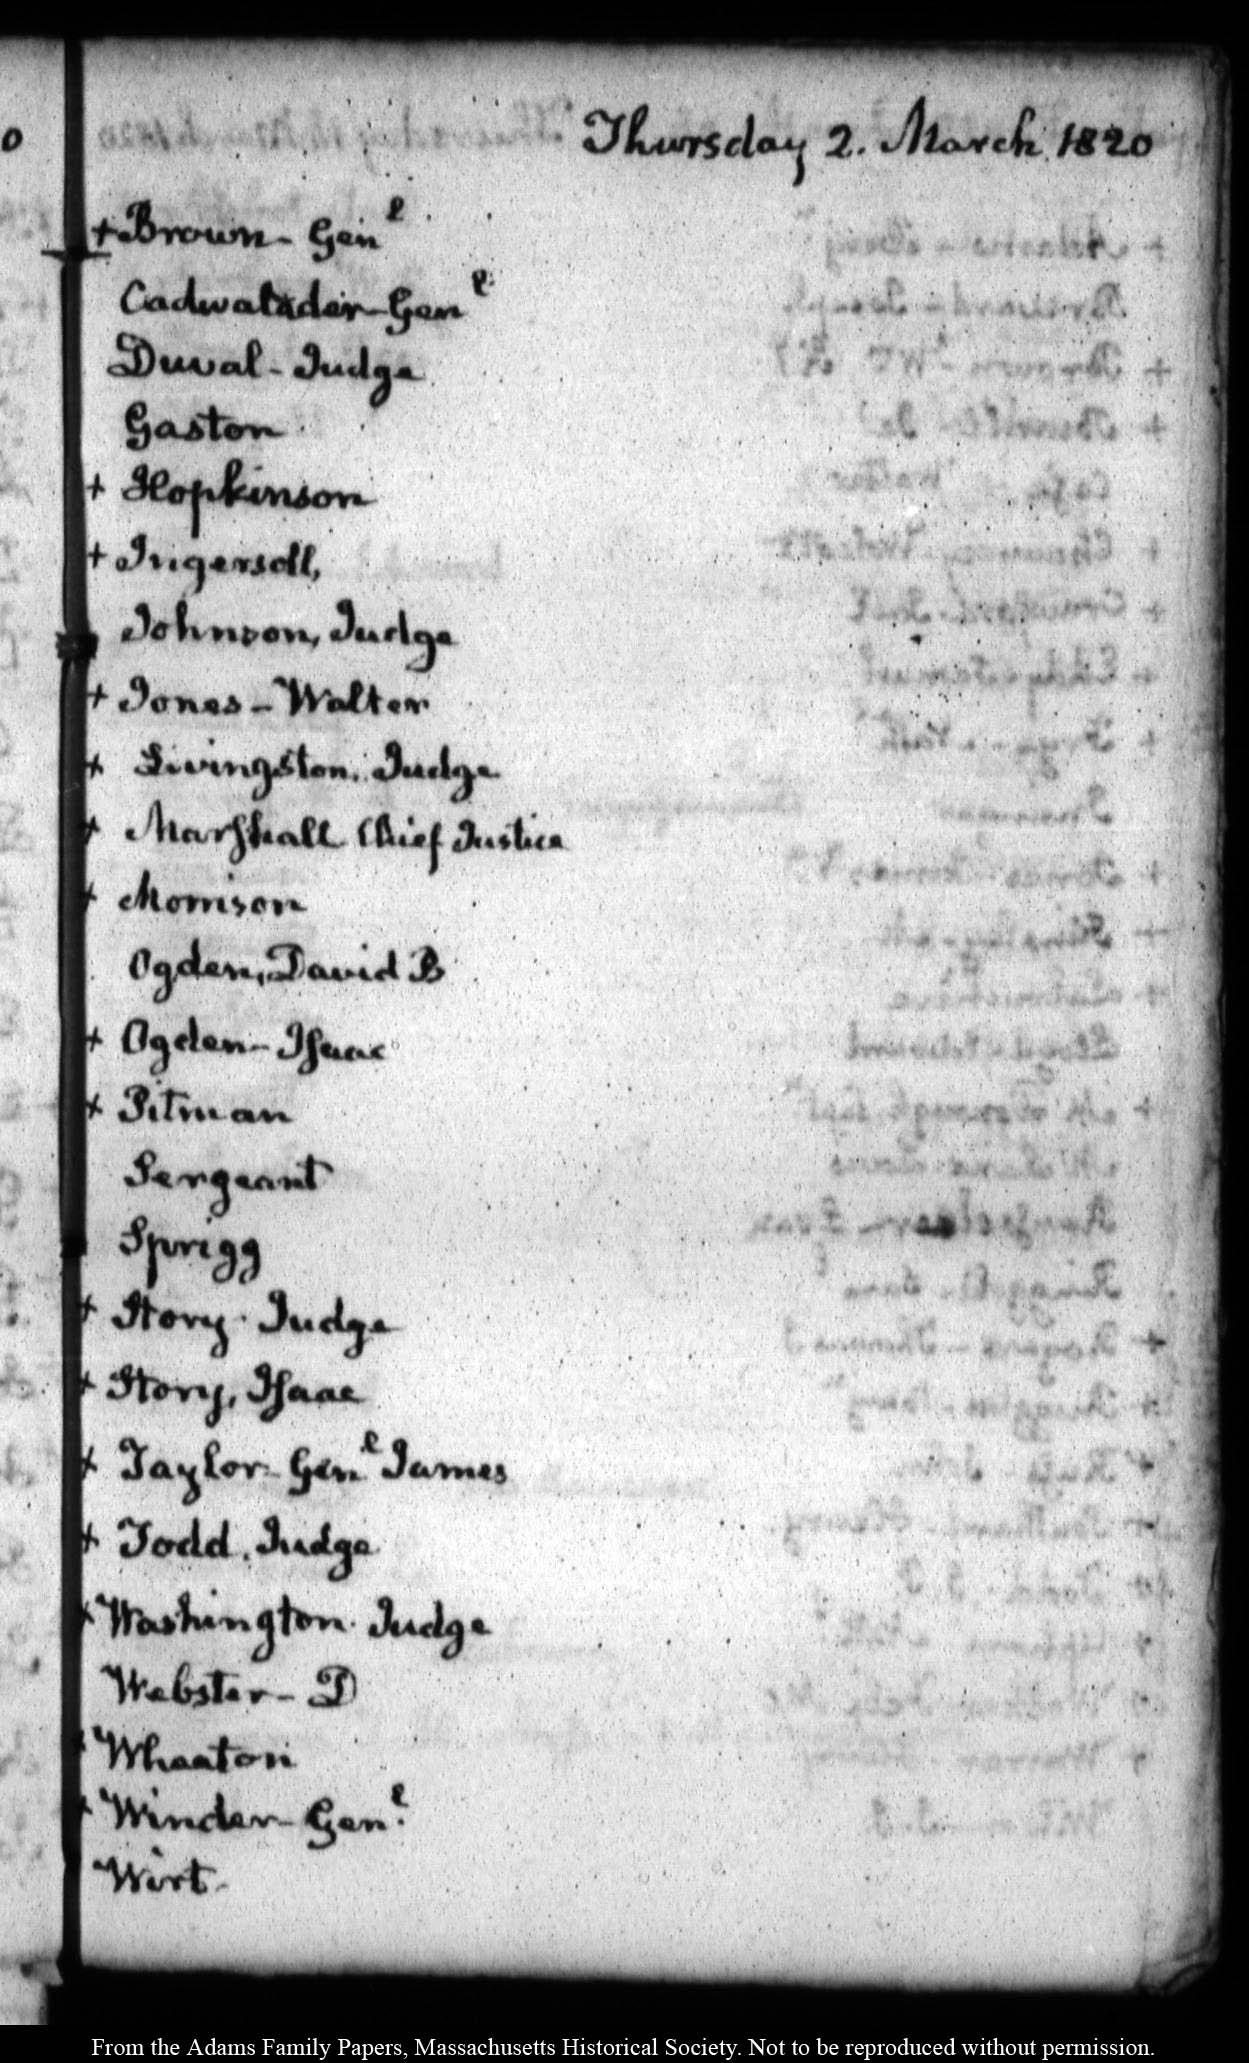 0
Thursday 2. March 1820
+ Brown - Genl.
Cadwalader - Genl.
Duval - Judge
Gaston
+ Hopkinson
+ Ingersoll,
Johnson, Judge
+ Jones - Walter
+ Livingston. Judge
+ Marshall Chief Justice
+ Morrison
Ogden, David B
+ Ogden - Isaac
+ Pitman
Sergeant
Sprigg
+ Story. Judge
+ Story, Isaac
+ Taylor - Genl James
+ Todd. Judge
+ Washington. Judge
Webster - D
+ Wheaton
+ Winder - Genl.
Wirt.
From the Adams Family Papers, Massachusetts Historical Society. Not to be reproduced without permission.